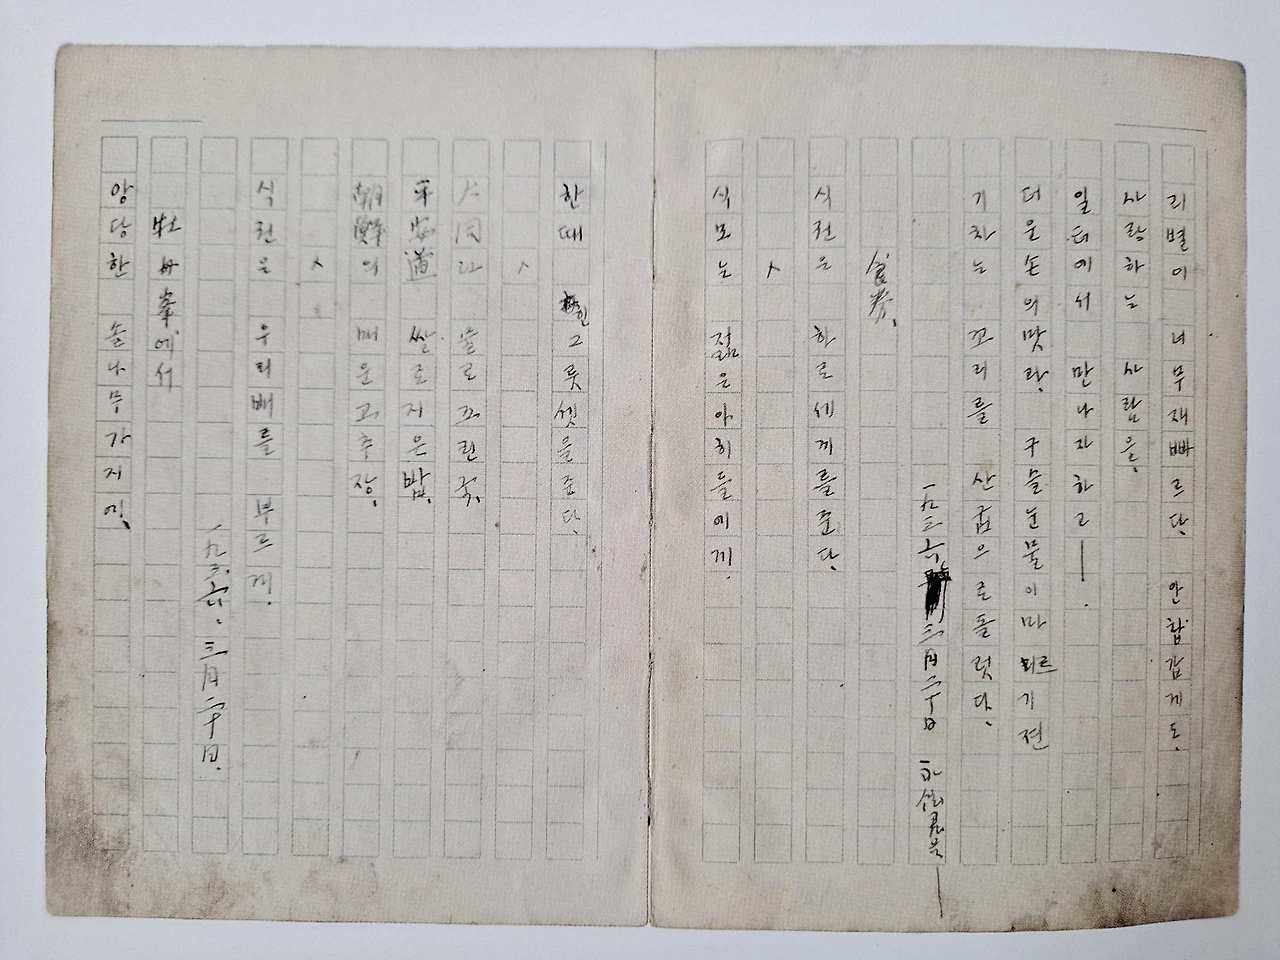 리별이 너무재빠르다, 안탑갑게도,
사랑하는 사람을,
일터에서 만나자하고——.
더운손의맛과, 구슬눈물이마르기전
기차는 꼬리를 산굽으로돌렷다.
一九三六年三月二十日 永鉉君을——
食券.
식권은 하로세끼를준다.
식모는 젊은아히들에게,
한때 힌그릇셋을준다.
大同江 물로끄린국,
平安道 쌀로지은밥,
朝鮮의 매운고추장,
식권은 우리배를 부르게.
一九三六. 三月二十日.
牡丹峯에서
앙당한 솔나무가지에,